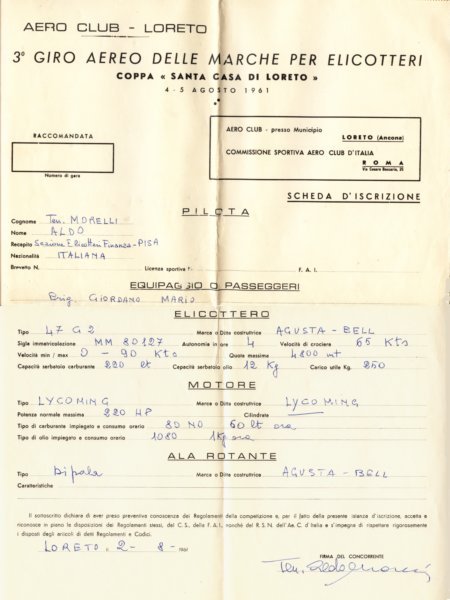 AERO CLUB - LORETO
3° GIRO AEREO DELLE MARCHE PER ELICOTTERI
COPPA « SANTA CASA DI LORETO »
4 - 5 AGOSTO 1961
RACCOMANDATA
Numero di gara
AERO CLUB - presso Municipio
LORETO (Ancona)
COMMISSIONE SPORTIVA AERO CLUB D'ITALIA
ROMA
Via Cesare Beccaria, 35
SCHEDA D'ISCRIZIONE
PILOTA
Cognome Ten. MORELLI
Nome ALDO
Recapito Sezione Elicotteri Finanza - PISA
Nazionalità ITALIANA
Brevetto N. Licenza sportiva F. A. I.
EQUIPAGGIO O PASSEGGERI
Brig. GIORDANO MARIO
ELICOTTERO
Tipo 47 G2 Marca o Ditta costruttrice AGUSTA - BELL
Sigle immatricolazione MM 80127 Autonomia in ore 4 Velocità di crociera 65 Kts
Velocità min / max 0 - 90 Kts Quota massima 4800 mt
Capacità serbatoio carburante 220 lt Capacità serbatoio olio 12 Kg Carico utile Kg. 250
MOTORE
Tipo LYCOMING Marca o Ditta costruttrice LYCOMING
Potenza normale massima 220 HP Cilindrata
Tipo di carburante impiegato e consumo orario 80 NO 60 lt ora
Tipo di olio impiegato e consumo orario 1080 1 Kg ora
ALA ROTANTE
Tipo Bipala Marca o Ditta costruttrice AGUSTA - BELL
Caratteristiche
Il sottoscritto dichiara di aver preso preventiva conoscenza dei Regolamenti della competizione e, per il fatto della presente istanza d'iscrizione, accetta e
riconosce in pieno le disposizioni dei Regolamenti stessi, del C.S., della F.A.I., nonché del R.S.N. dell'Ae.C. d'Italia e s'impegna di rispettare rigorosamente
i disposti degli articoli di detti Regolamenti e Codici.
LORETO lì 2 - 8 - 1961
FIRMA DEL CONCORRENTE
Ten. Aldo Morelli